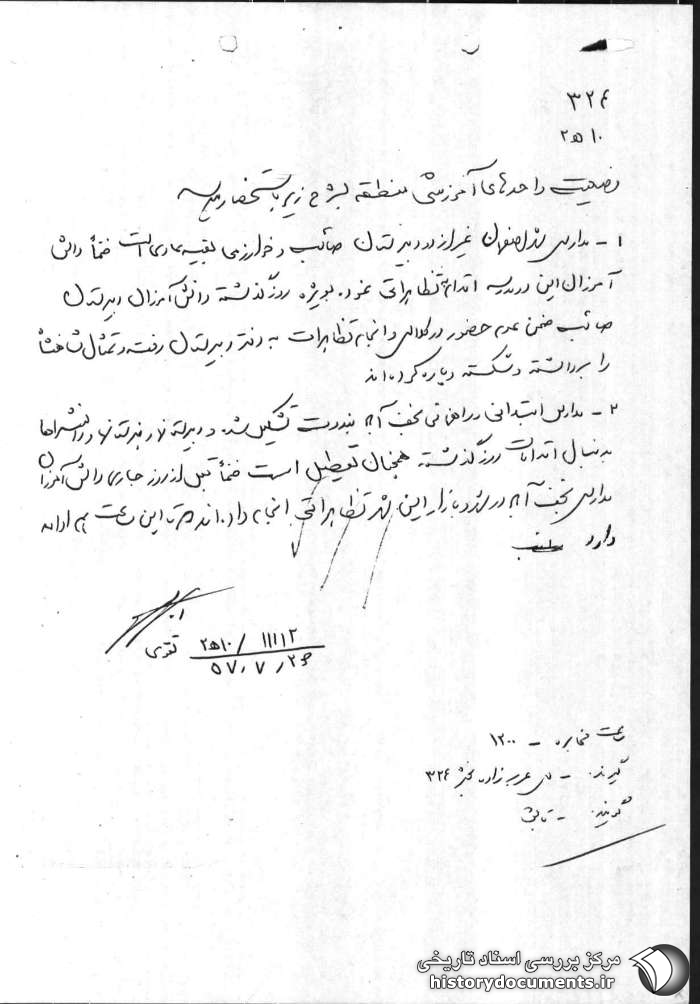 ۳۲۴
۲ﻫ۱۰
وضعیت واحدهای آموزشی منطقه بشرح زیر باستحضار میرسد
۱ - مدارس شهر اصفهان غیر از دو دبیرستان صائب و خوارزمی بقیه عادی است ضمناً دانش
آموزان این دو مدرسه اقدام بتظاهراتی نموده بویژه روز گذشته دانش آموزان دبیرستان
صائب ضمن عدم حضور در کلاس و انجام تظاهرات به دفتر دبیرستان رفته و تمثال شاهنشاه
را برداشته و شکسته و پاره کرده‌اند
۲ - مدارس ابتدائی و راهنمائی نجف آباد بندرت تشکیل شده و دبیرستانها و هنرستانها و دانشسراها
به دنبال اقدامات روز گذشته همچنان تعطیل است ضمناً قبل از روز جاری دانش آموزان
مدارس نجف آباد در شهر و بازار این شهر تظاهراتی انجام داده‌اند که تا این ساعت هم ادامه
دارد
۲ﻫ۱۰/۱۱۱۱۲
۵۷٫۷٫۲۶
تقوی
ساعت مخابره - ۱۲۰۰
گیرنده - عرب زاده بخش ۳۲۴
گوینده - تابش
مرکز بررسی اسناد تاریخی
historydocuments.ir